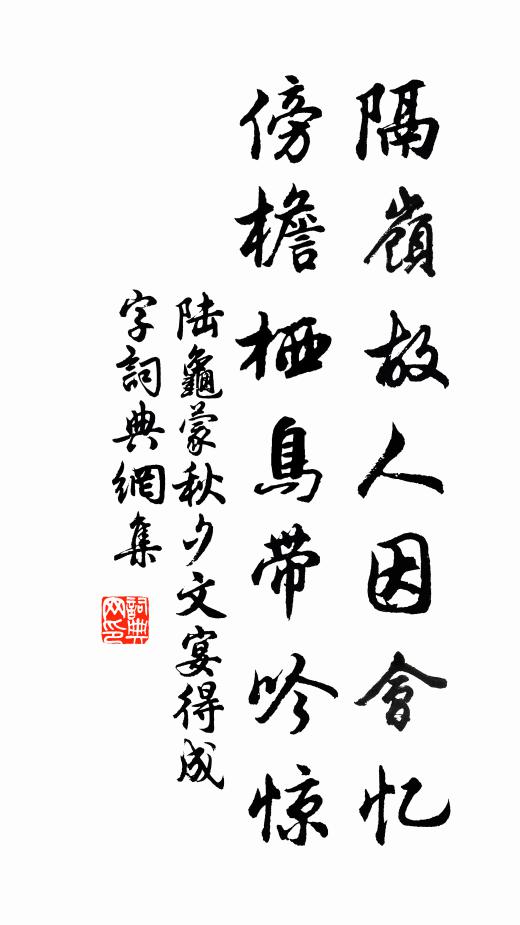 隔嶺故人因會忆
傍檐栖鳥带吟惊
陆龜蒙秋夕文宴得成
字詞典網集
詞典网印